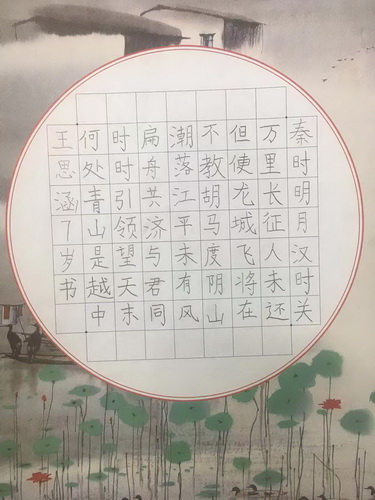 秦时明月汉时关
万里长征人未还
但使龙城飞将在
不教胡马度阴山
潮落江平未有风
扁舟共济与君同
时时引领望天末
何处青山是越中
王思涵7岁书